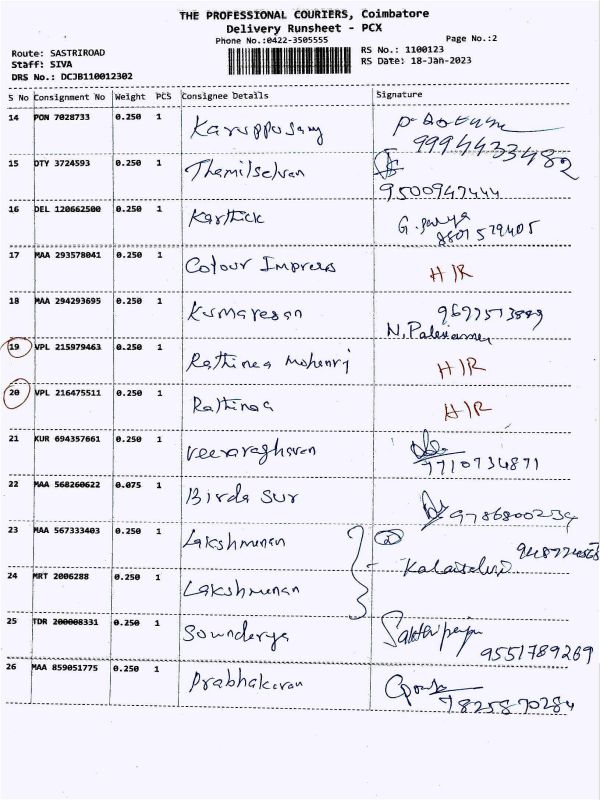 THE PROFESSIONAL COURIERS, Coimbatore
Delivery Runsheet - PCX
Phone No.:0422-3505555
Page No.:2
Route: SASTRIROAD
RS No.: 1100123
Staff: SIVA
RS Date: 18-Jan-2023
DRS No.: DCJB110012302
S No Consignment No Weight PCS Consignee Details Signature
14 PON 7028733 0.250 1 Karuppusamy
9994433482
15 DTY 3724593 0.250 1 Thamilselvan
9500947444
16 DEL 120662500 0.250 1 Karthick
17 MAA 293578041 0.250 1 Colour Impress H/R
18 MAA 294293695 0.250 1 Kumaresan
19 VPL 215979463 0.250 1 Rathinaa H/R
20 VPL 216475511 0.250 1 Rathinaa H/R
21 KUR 694357661 0.250 1 Veeraraghavan
7710734871
22 MAA 568260622 0.075 1 Birda Sur
9786800234
23 MAA 567333403 0.250 1 Lakshmanan 2
Kalaiselvi
24 MRT 2006288 0.250 1 Lakshmanan
25 TDR 200008331 0.250 1 Sounderya
9551789269
26 MAA 859051775 0.250 1 Prabhakaran
7825870284